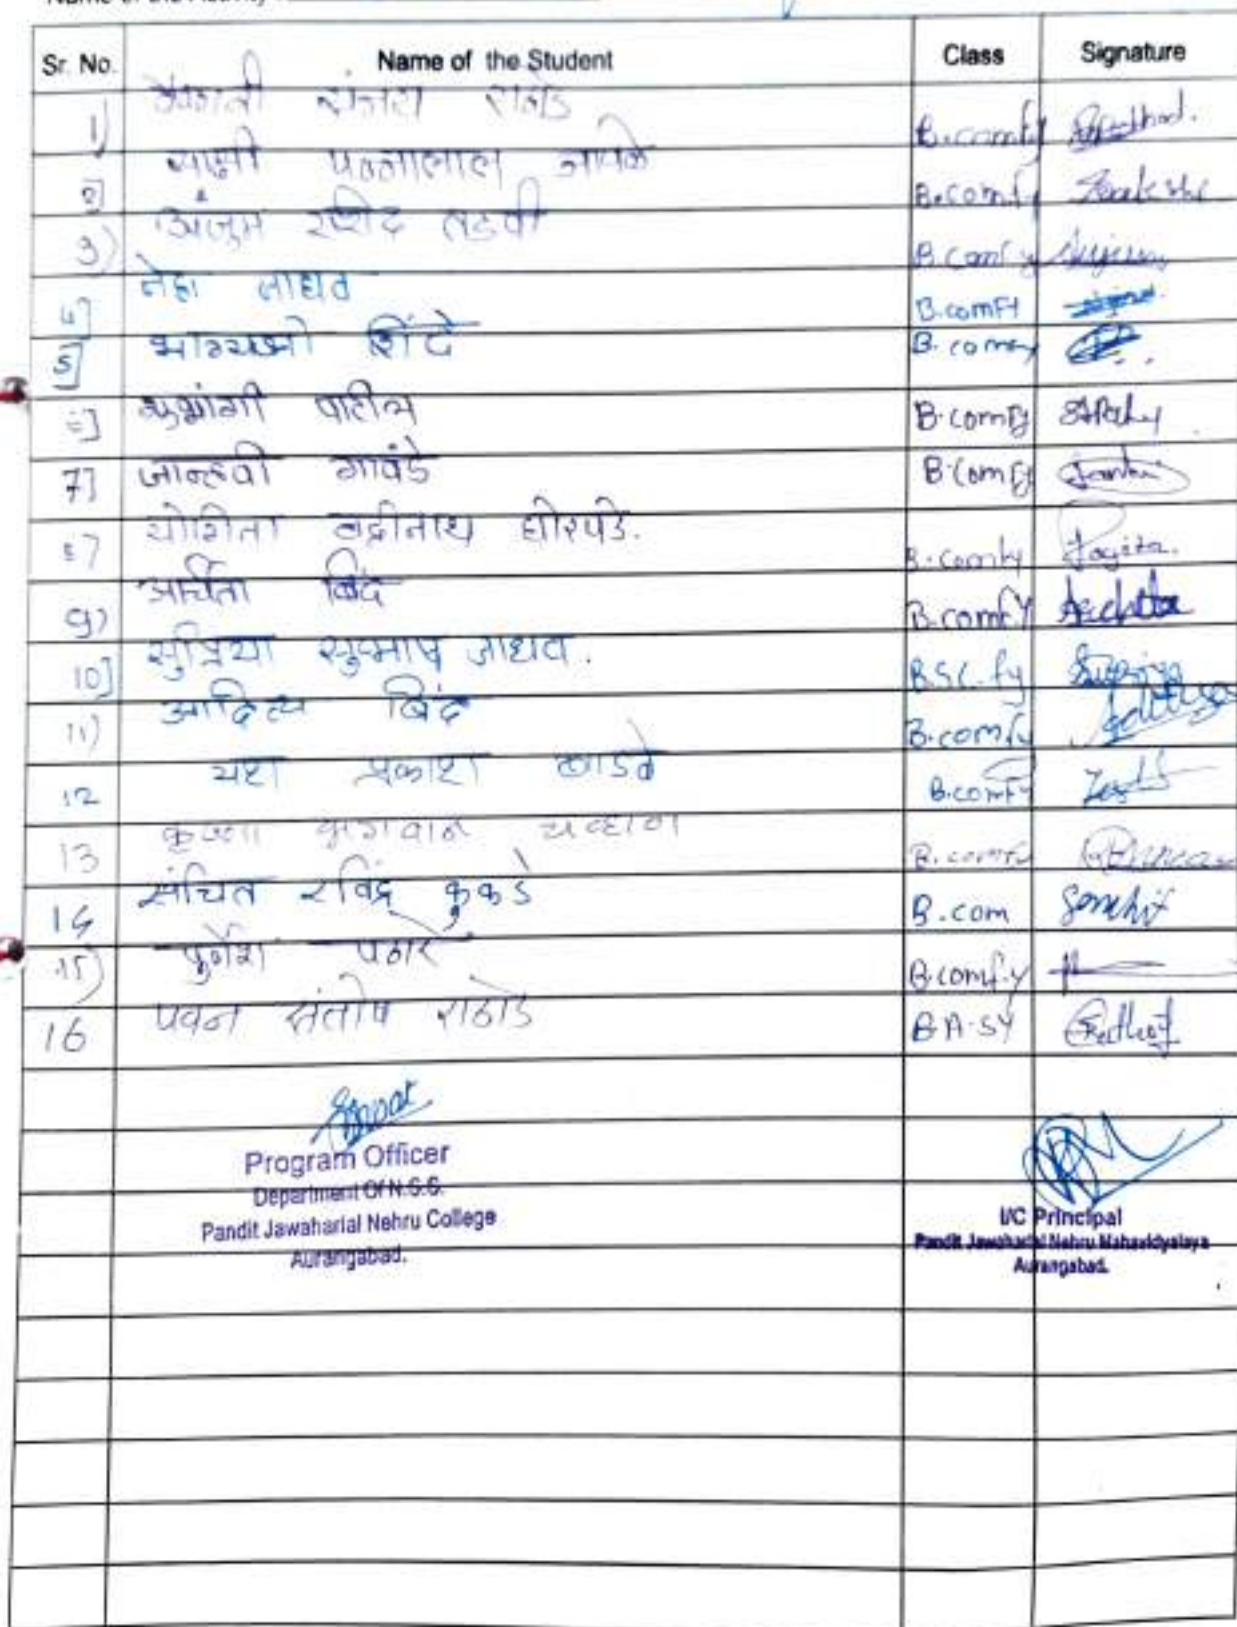 Sr. No. Name of the Student Class Signature
1) राठोड B.comfy Rathod.
2] साक्षी पन्नालाल B.comfy Saakshi
3) अंजुम रशीद तडवी B.comfy Anjum
4] नेहा जाधव B.comFY
5] भाग्यश्री शिंदे B.comfy
6] शुभांगी पाटील B.comfy
7] जान्हवी गावंडे B.comfy
8] योगिता बद्रीनाथ घोरपडे. B.comfy Yogita.
9) अर्चिता बिंद B.comfy Archita
10] सुप्रिया सुभाष जाधव. B.Sc.fy Supriya
11) आदित्य बिंद B.comfy Aditya
12 यश प्रकाश B.comFY
13 कृष्णा भगवान चव्हाण B.comfy
14 संचित रविंद्र कुकडे B.com Sanchit
15) पठारे B.comf.y
16 पवन संतोष राठोड B.A.SY Rathod
Program Officer
Department Of N.S.S.
Pandit Jawaharlal Nehru College
Aurangabad.
I/C Principal
Pandit Jawaharlal Nehru Mahavidyalaya
Aurangabad.